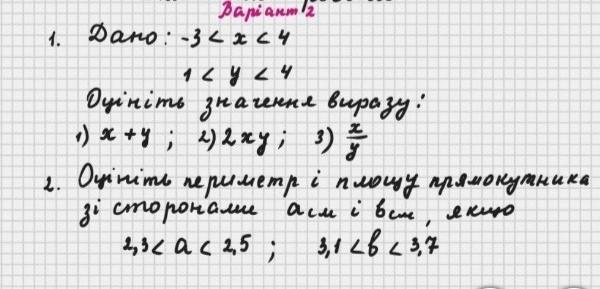 Варіант 2
1. Дано: -3 < x < 4
1 < y < 4
Оцініть значення виразу:
1) x + y ; 2) 2xy ; 3) x/y
2. Оцініть периметр і площу прямокутника
зі сторонами a см і b см, якщо
2,3 < a < 2,5 ; 3,1 < b < 3,7